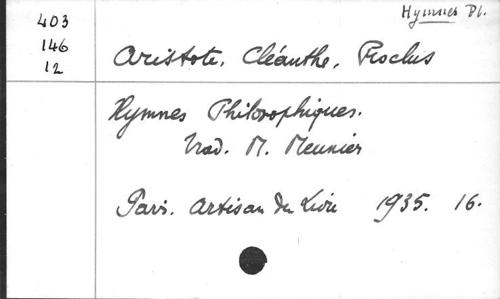 Hymnes Ph.
403
146
12
Aristote, Cléanthe, Proclus
Hymnes Philosophiques.
Trad. M. Meunier
Paris. Artisan du Livre 1935. 16.